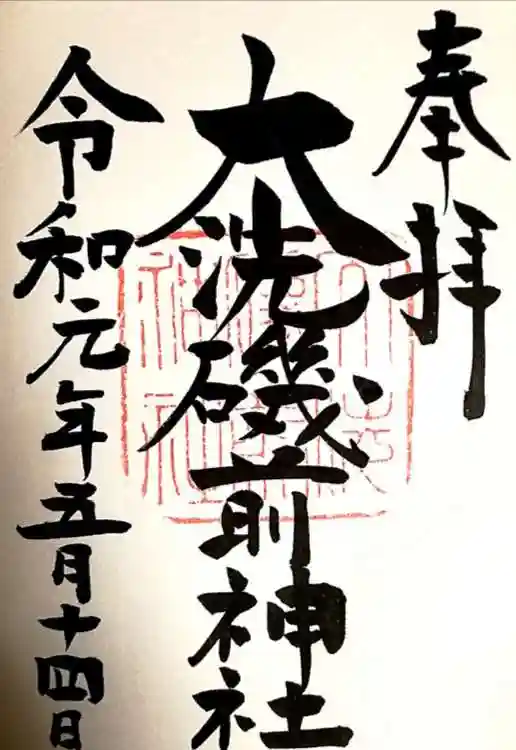 奉拝
大洗磯前神社
令和元年五月十四日